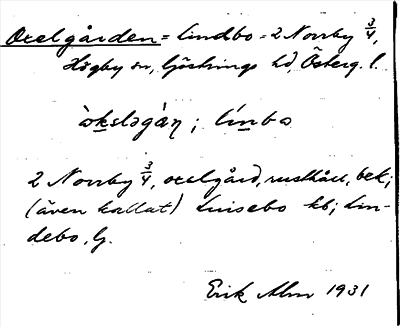 Oxelgården = Lindbo = 2 Norrby 3/4,
Högby sn, Göstrings hd, Österg. l.
òkslǝgàṇ; línbo
2 Norrby 3/4, oxelgård, rusthåll, bek;
(även kallat) Luisebo kb; Lin-
debo, G.
Erik Alm 1931